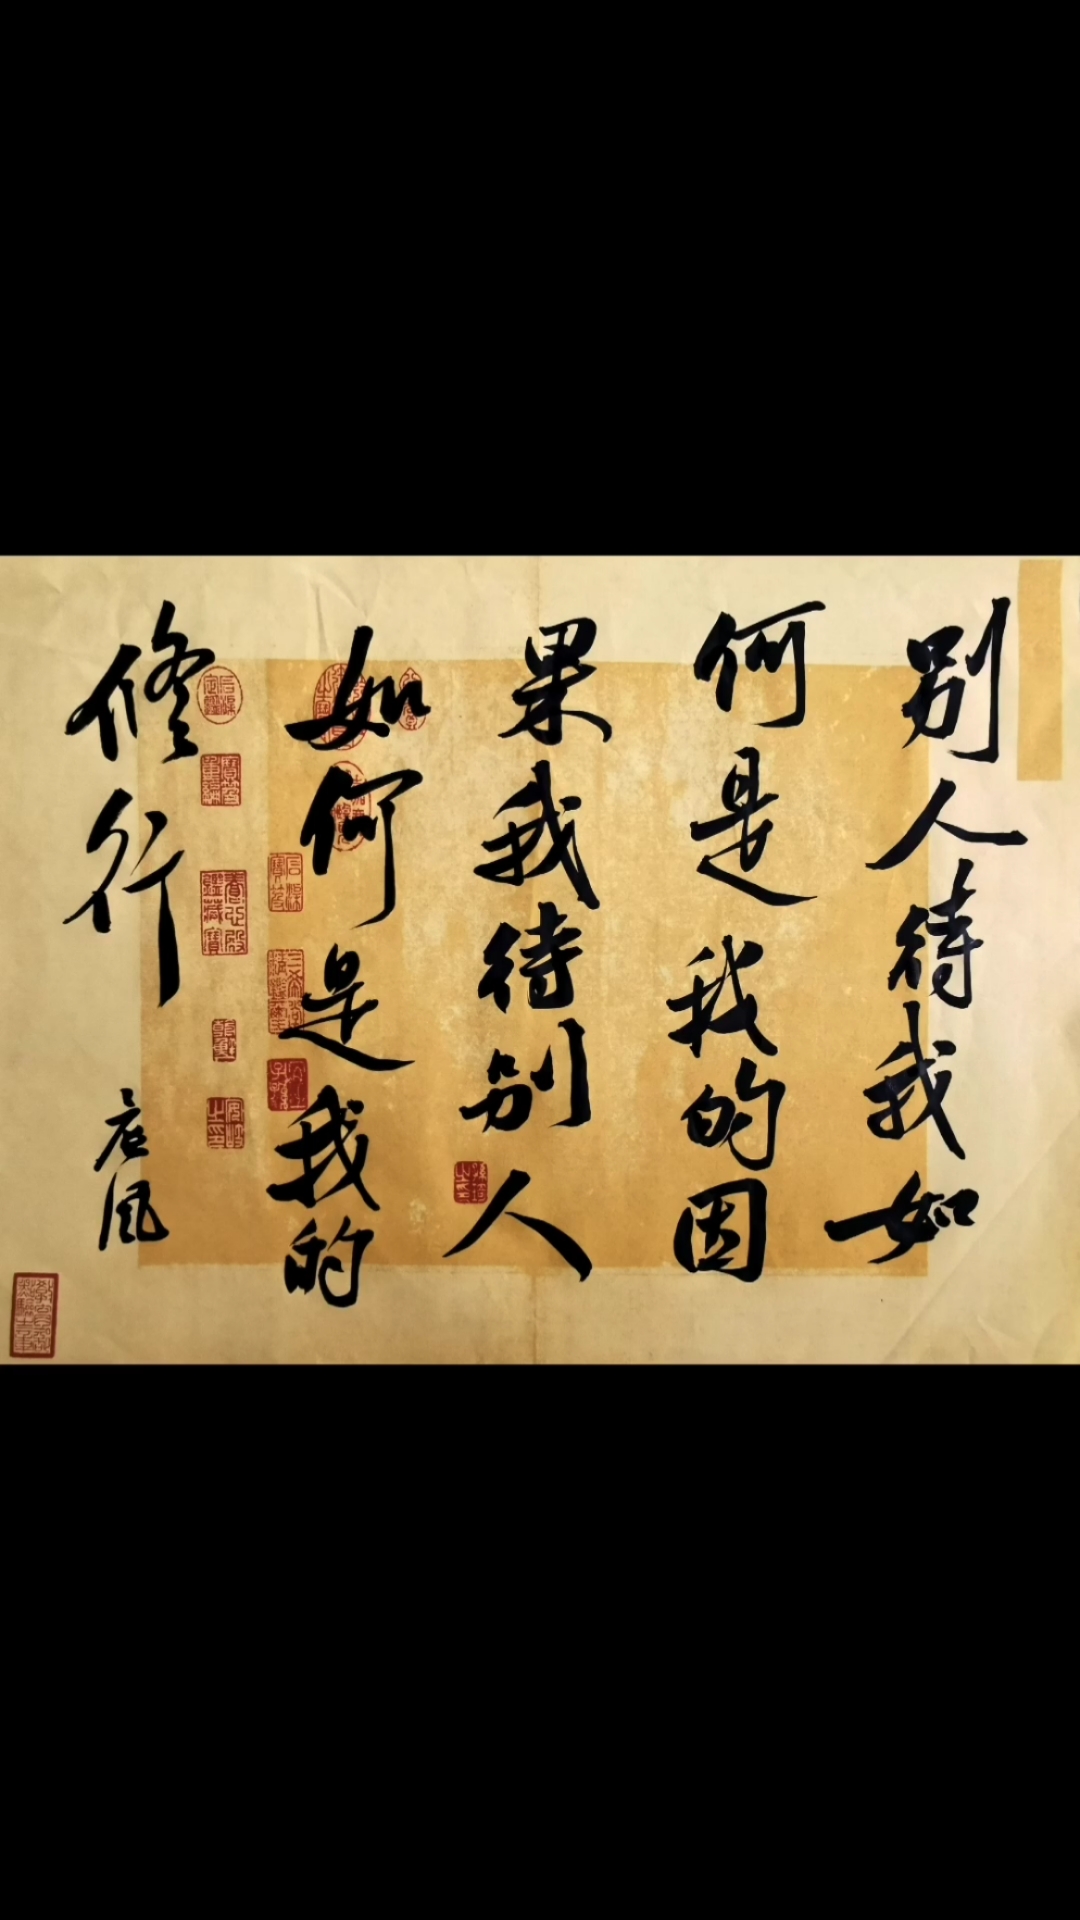 别人待我如
何是我的因
果我待别人
如何是我的
修行